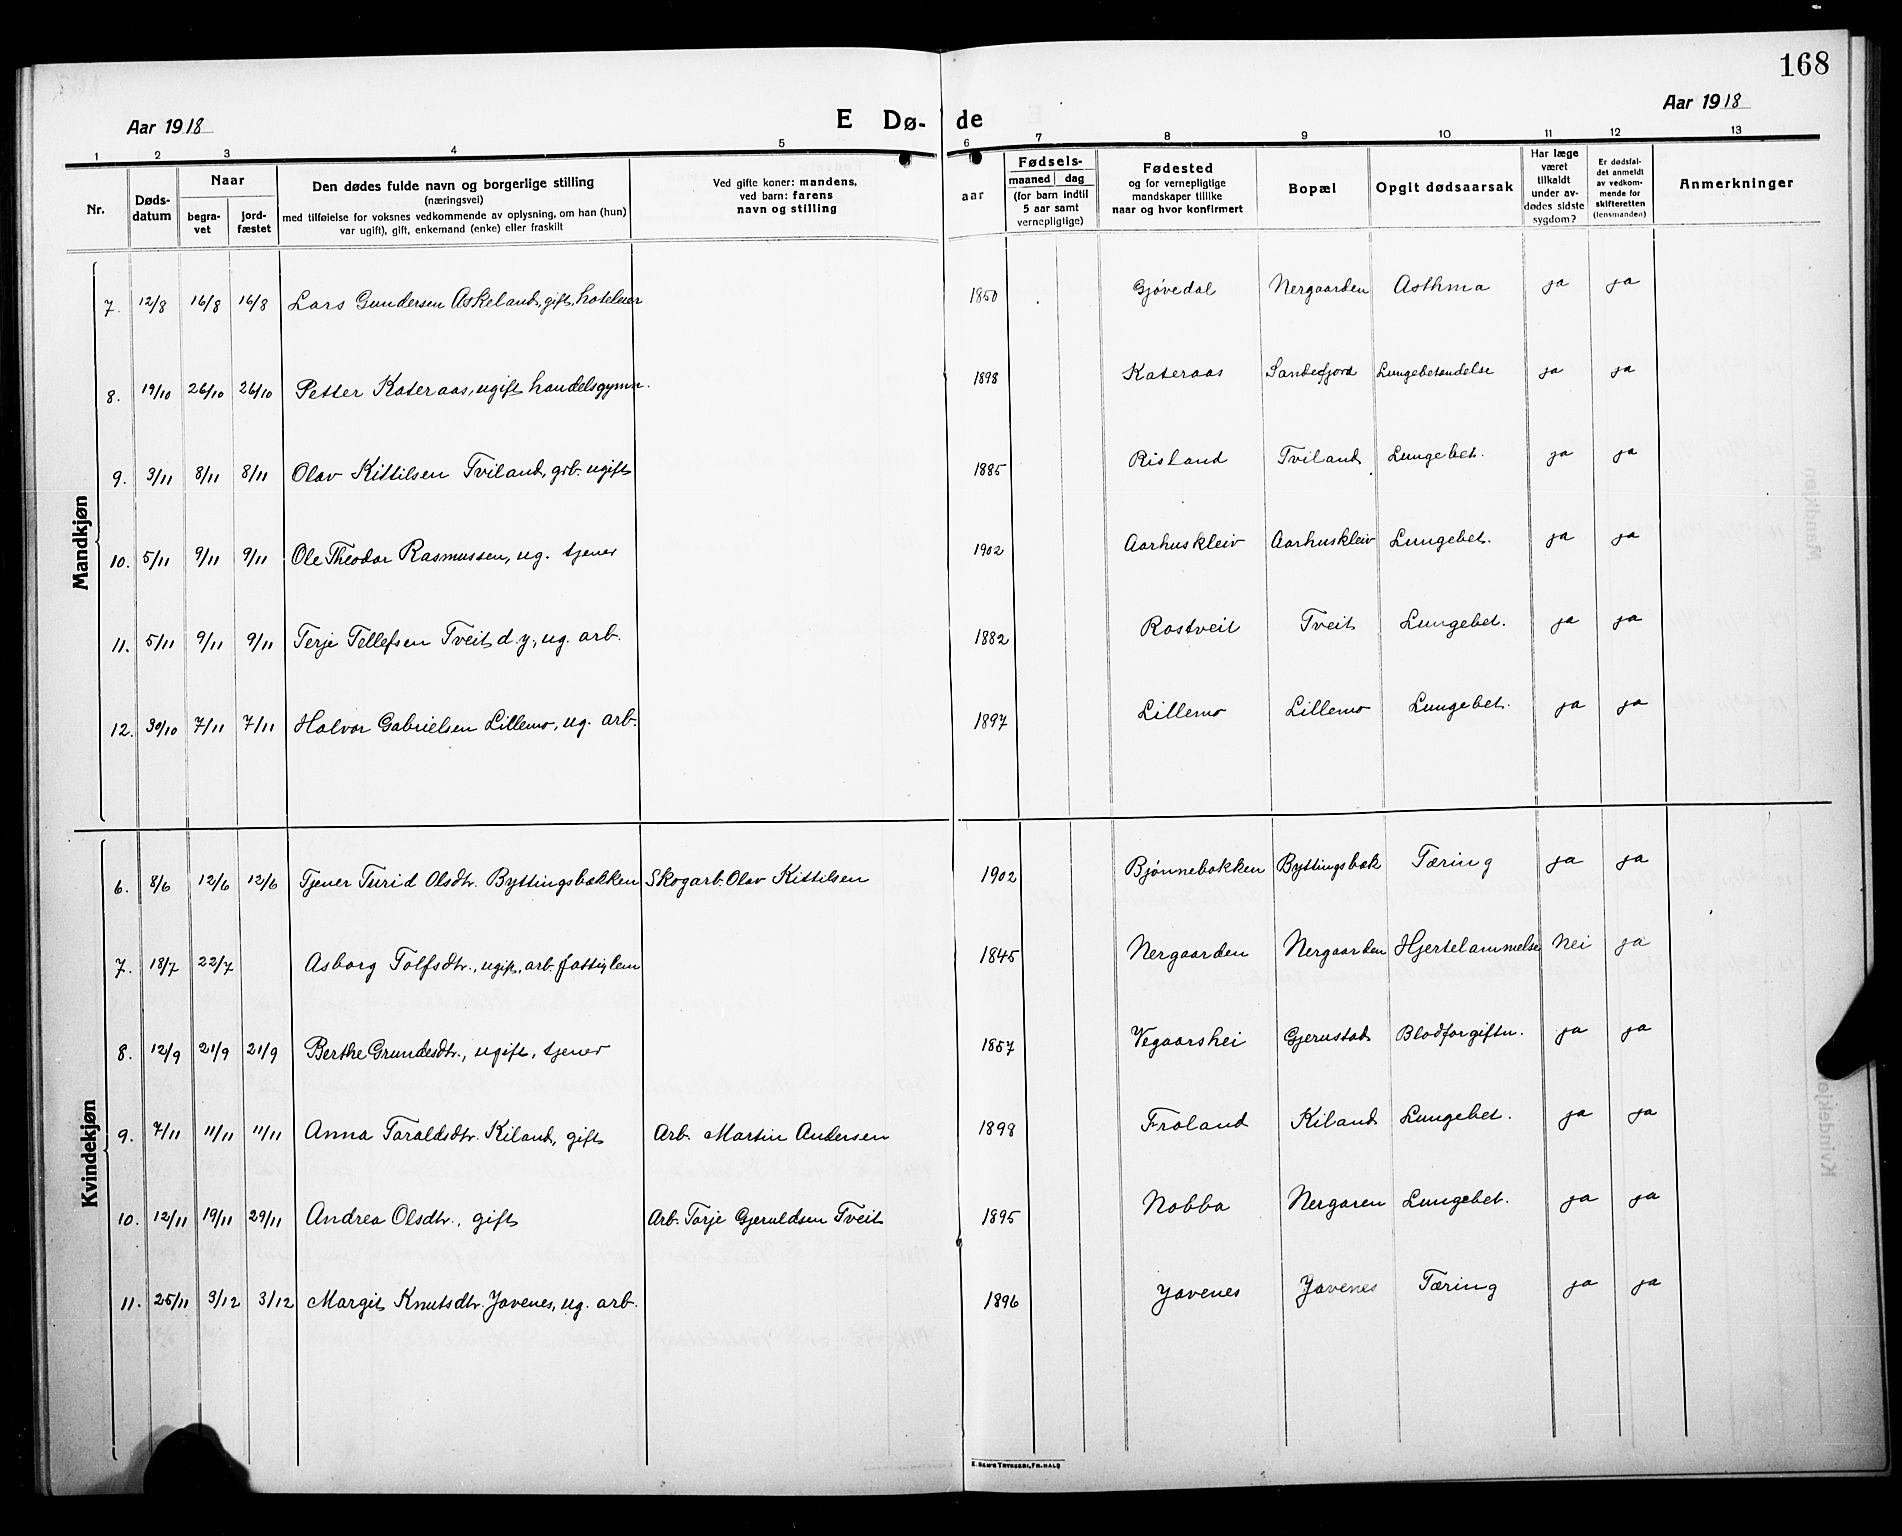 168
Aar 1918
E Dø-
de
Aar 1918
1 2 3 4 5 6 7 8 9 10 11 12 13
Nr. Døds-datum Naar begra-vet jord-fæstet Den dødes fulde navn og borgerlige stilling (næringsvei) med tilføielse for voksnes vedkommende av oplysning, om han (hun) var ugift), gift, enkemand (enke) eller fraskilt Ved gifte koner: mandens, ved barn: farens navn og stilling aar Fødsels- maaned dag (for barn indtil 5 aar samt vernepligtige) Fødested og for vernepligtige mandskaper tillike naar og hvor konfirmert Bopæl Opgit dødsaarsak Har læge været tilkaldt under av-dødes sidste sygdom? Er dødsfal-det anmeldt av vedkom-mende for skifteretten (lensmanden) Anmerkninger
Mandkjøn
7. 12/8 16/8 16/8 Lars Gundersen Askeland, gift, hoteleier 1850 Gjøvedal Nergaarden Asthma ja ja
8. 19/10 26/10 26/10 Petter Kateraas, ugift handelsgymn. 1898 Kateraas Sandefjord Lungebetændelse ja ja
9. 3/11 8/11 8/11 Olav Kittilsen Tviland, grb. ugift 1885 Risland Tviland Lungebet. ja ja
10. 5/11 9/11 9/11 Ole Theodor Rasmussen, ug. tjener 1902 Aarhuskleiv Aarhuskleiv Lungebet. ja ja
11. 5/11 9/11 9/11 Terje Tellefsen Tveit d.y., ug. arb. 1882 Rostveit Tveit Lungebet. ja ja
12. 30/10 7/11 7/11 Halvor Gabrielsen Lillemo, ug. arb. 1897 Lillemo Lillemo Lungebet. ja ja
Kvindekjøn
6. 8/6 12/6 12/6 Tjener Turid Olsdtr. Byttingsbakken Skogarb. Olav Kittilsen 1902 Bjønnebakken Byttingsbak Tæring ja ja
7. 18/7 22/7 Asborg Tolfsdtr., ugift, arb. fattiglem 1845 Nergaarden Nergaarden Hjertelammelse Nei ja
8. 12/9 21/9 21/9 Berthe Grundesdtr., ugift, tjener 1857 Vegaarshei Gjerustad Blodforgiftn. ja ja
9. 7/11 11/11 11/11 Anna Taraldsdtr. Kiland, gift Arb. Martin Andersen 1898 Froland Kiland Lungebet. ja ja
10. 12/11 19/11 29/11 Andrea Olsdtr., gift Arb. Torje Gjeruldsen Tveit 1895 Nobba Nergaren Lungebet. ja ja
11. 25/11 3/12 3/12 Margit Knutsdtr. Jovenes, ug. arb. 1896 Jovenes Jovenes Tæring ja ja
E. SEM'S TRYKKERI, FR.HALD